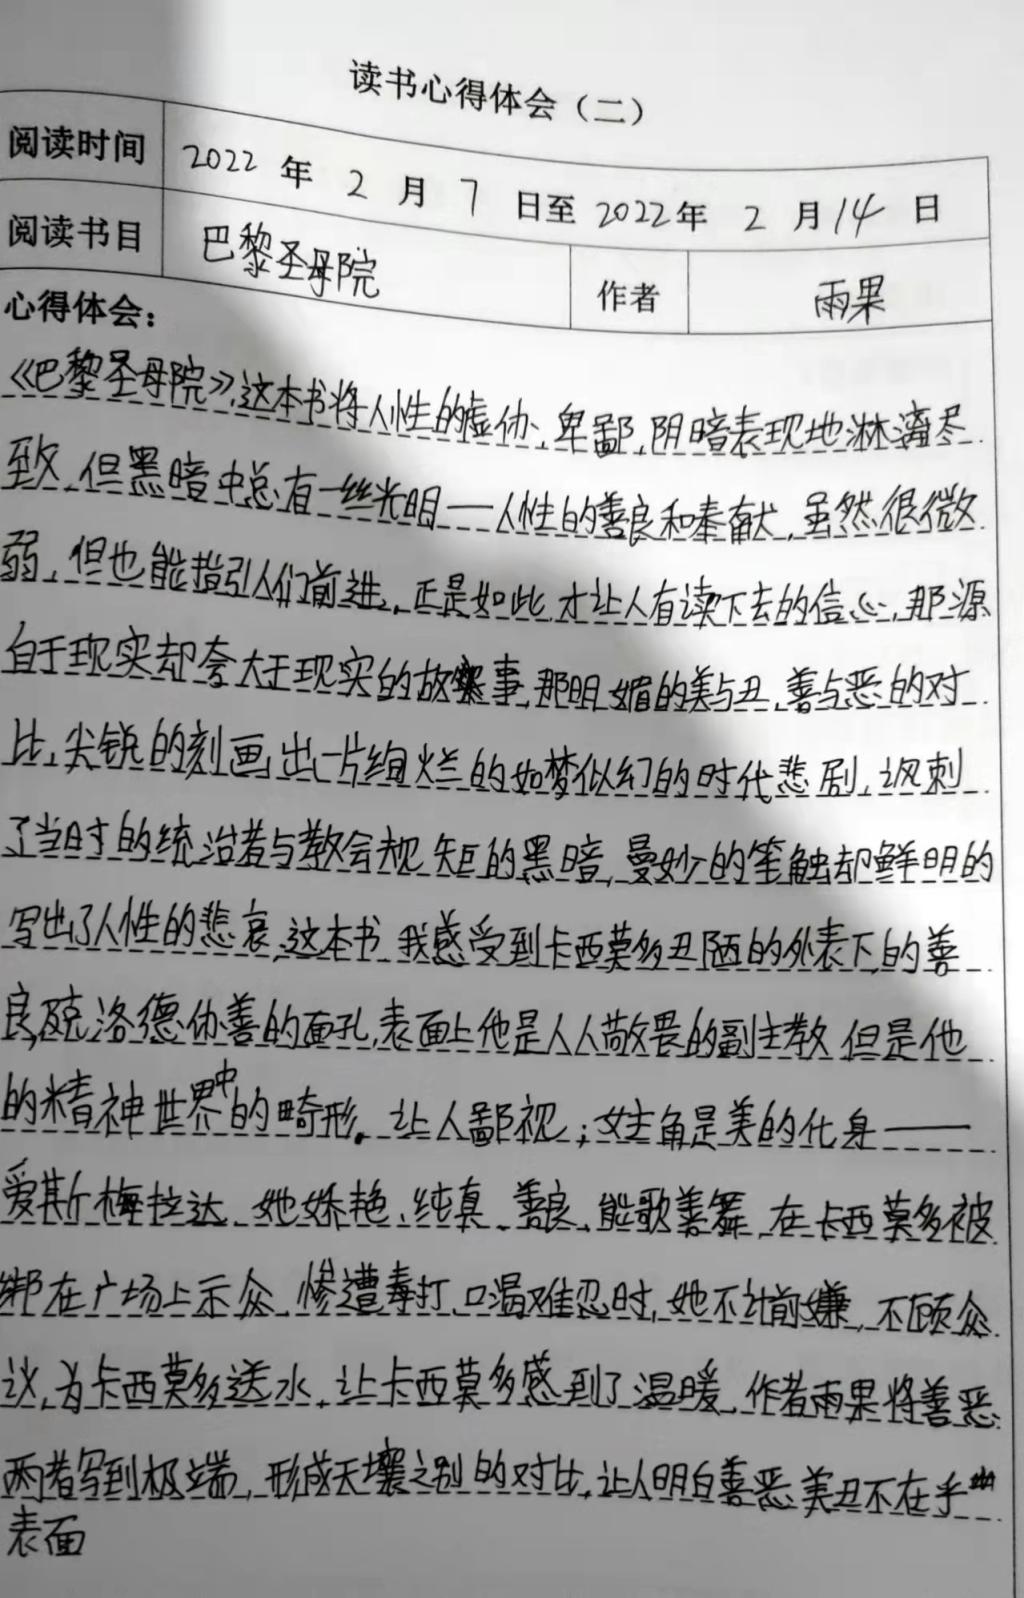 读书心得体会（二）
阅读时间 2022 年 2 月 7 日至 2022年 2 月 14 日
阅读书目 巴黎圣母院 作者 雨果
心得体会：
《巴黎圣母院》,这本书将人性的虚伪、卑鄙,阴暗表现地淋漓尽
致,但黑暗中总有一丝光明——人性的善良和奉献,虽然很微
弱,但也能指引人们前进,正是如此,才让人有读下去的信心,那源
自于现实却夸大于现实的故事,那明媚的美与丑,善与恶的对
比,尖锐的刻画出一片绚烂的如梦似幻的时代悲剧,讽刺
了当时的统治者与教会规矩的黑暗,曼妙的笔触却鲜明的
写出了人性的悲哀,这本书,我感受到卡西莫多丑陋的外表下的善
良,克洛德伪善的面孔,表面上他是人人敬畏的副主教,但是他
的精神世界中的畸形。让人鄙视;女主角是美的化身——
爱斯梅拉达,她姝艳、纯真、善良、能歌善舞,在卡西莫多被
绑在广场上示众,惨遭毒打,口渴难忍时,她不计前嫌,不顾众
议,为卡西莫多送水,让卡西莫多感到了温暖,作者雨果将善恶
两者写到极端,形成天壤之别的对比,让人明白善恶美丑不在乎
表面